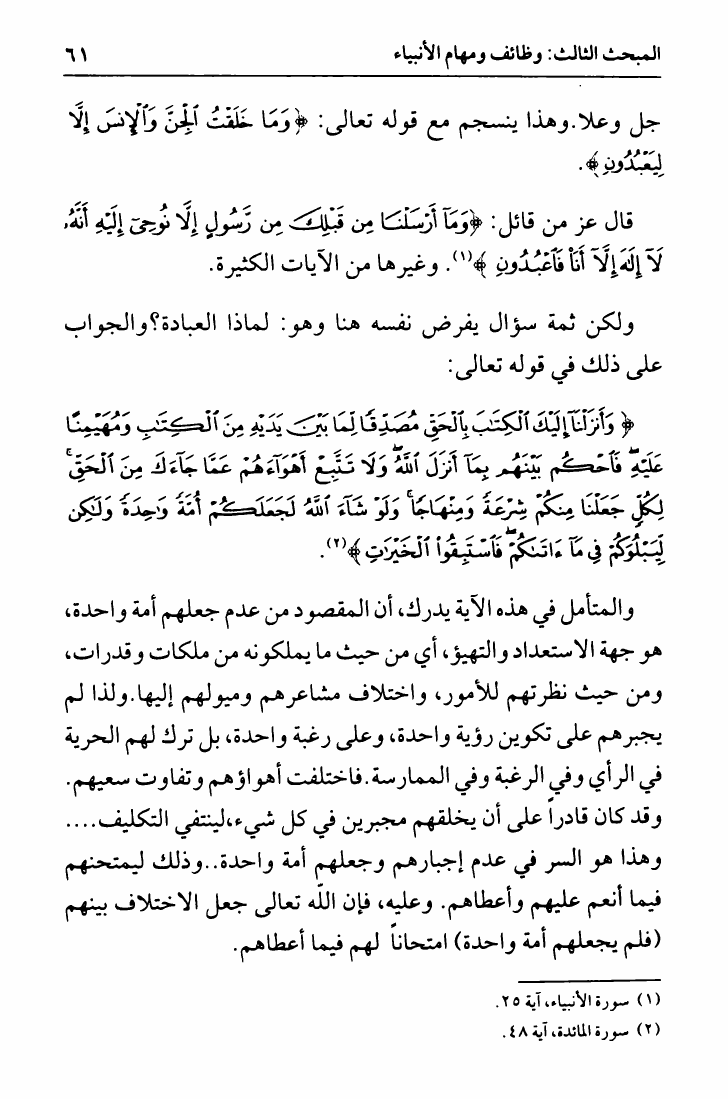 المبحث الثالث: وظائف ومهام الأنبياء ٦١
جل وعلا.وهذا ينسجم مع قوله تعالى: ﴿وَمَا خَلَقْتُ ٱلْجِنَّ وَٱلْإِنسَ إِلَّا
لِيَعْبُدُونِ﴾.
قال عز من قائل: ﴿وَمَآ أَرْسَلْنَا مِن قَبْلِكَ مِن رَّسُولٍ إِلَّا نُوحِىٓ إِلَيْهِ أَنَّهُۥ
لَآ إِلَٰهَ إِلَّآ أَنَا۠ فَٱعْبُدُونِ ﴾(١). وغيرها من الآيات الكثيرة.
ولكن ثمة سؤال يفرض نفسه هنا وهو: لماذا العبادة؟والجواب
على ذلك في قوله تعالى:
﴿ وَأَنزَلْنَآ إِلَيْكَ ٱلْكِتَٰبَ بِٱلْحَقِّ مُصَدِّقًا لِّمَا بَيْنَ يَدَيْهِ مِنَ ٱلْكِتَٰبِ وَمُهَيْمِنًا
عَلَيْهِ ۖ فَٱحْكُم بَيْنَهُم بِمَآ أَنزَلَ ٱللَّهُ ۖ وَلَا تَتَّبِعْ أَهْوَآءَهُمْ عَمَّا جَآءَكَ مِنَ ٱلْحَقِّ ۚ
لِكُلٍّ جَعَلْنَا مِنكُمْ شِرْعَةً وَمِنْهَاجًا ۚ وَلَوْ شَآءَ ٱللَّهُ لَجَعَلَكُمْ أُمَّةً وَٰحِدَةً وَلَٰكِن
لِّيَبْلُوَكُمْ فِى مَآ ءَاتَىٰكُمْ ۖ فَٱسْتَبِقُوا۟ ٱلْخَيْرَٰتِ ﴾(٢).
والمتأمل في هذه الآية يدرك، أن المقصود من عدم جعلهم أمة واحدة،
هو جهة الاستعداد والتهيؤ، أي من حيث ما يملكونه من ملكات وقدرات،
ومن حيث نظرتهم للأمور، واختلاف مشاعرهم وميولهم إليها.ولذا لم
يجبرهم على تكوين رؤية واحدة، وعلى رغبة واحدة، بل ترك لهم الحرية
في الرأي وفي الرغبة وفي الممارسة.فاختلفت أهواؤهم وتفاوت سعيهم.
وقد كان قادراً على أن يخلقهم مجبرين في كل شيء،لينتفي التكليف....
وهذا هو السر في عدم إجبارهم وجعلهم أمة واحدة..وذلك ليمتحنهم
فيما أنعم عليهم وأعطاهم. وعليه، فإن الله تعالى جعل الاختلاف بينهم
(فلم يجعلهم أمة واحدة) امتحاناً لهم فيما أعطاهم.
(١) سورة الأنبياء، آية ٢٥.
(٢) سورة المائدة، آية ٤٨.